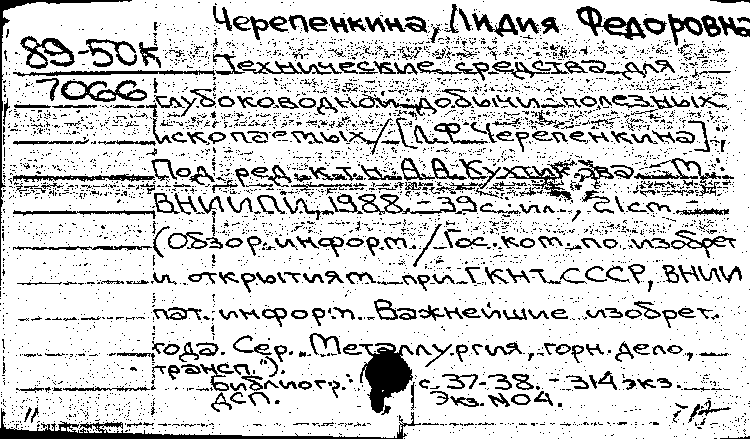 Черепенкина, Лидия Федоровна
89-50К
7066
Технические средства для
глубоководной добычи полезных
ископаемых / [Л.Ф. Черепенкина];
Под ред. к.т.н. А.А. Кухтикова. - М.:
ВНИИПИ, 1988. - 39с. ил., 21см. -
(Обзор. информ. / Гос. ком. по изобрет
и открытиям при ГКНТ СССР, ВНИИ
пат. информ. Важнейшие изобрет.
года. Сер. "Металлургия, горн. дело,
трансп.").
Библиогр.: с. 37-38. - 314 экз.
ДСП. Экз. N04.